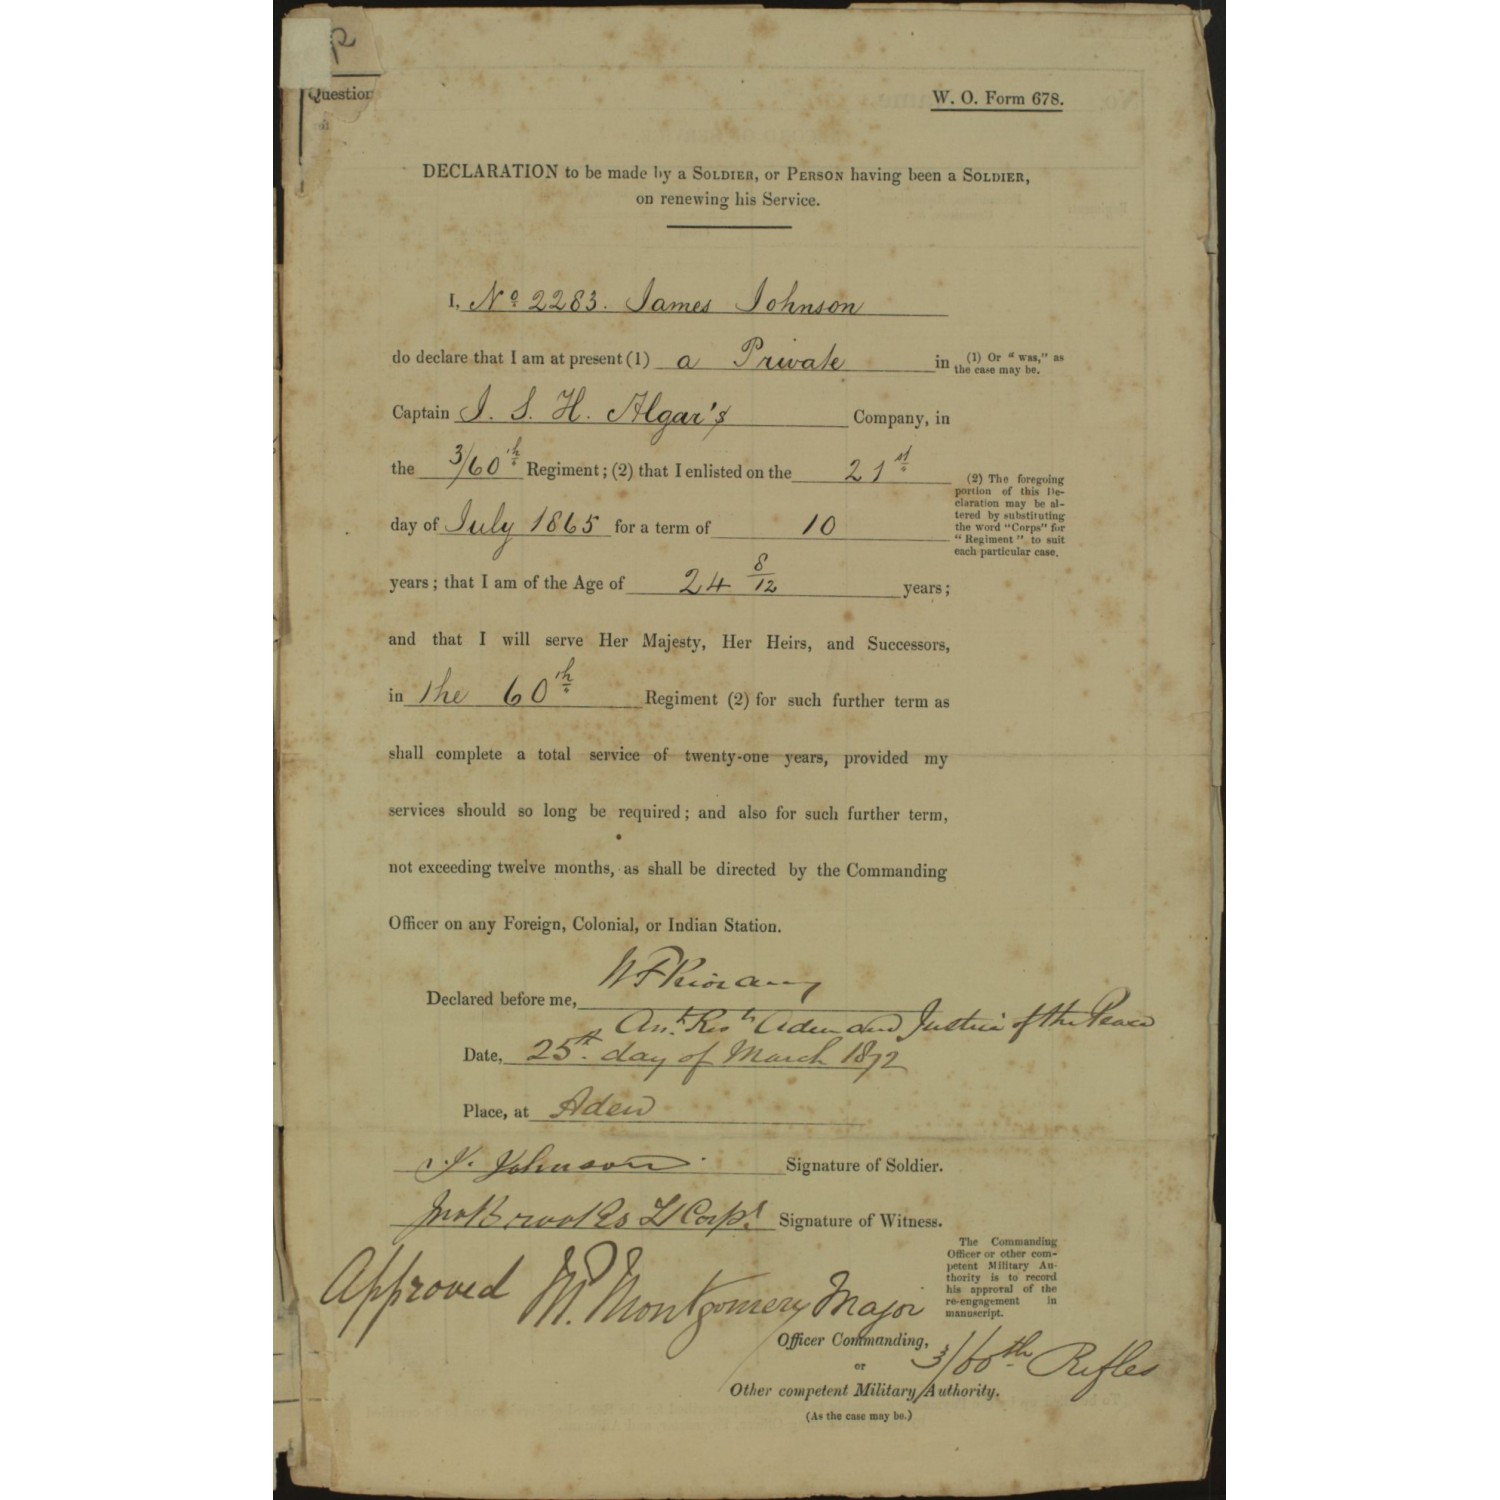 Question
W. O. Form 678.
DECLARATION to be made by a SOLDIER, or PERSON having been a SOLDIER,
on renewing his Service.
I, No. 2283. James Johnson
do declare that I am at present (1) a Private in
(1) Or "was," as
the case may be.
Captain J. S. H. Algar's Company, in
the 3/60th Regiment; (2) that I enlisted on the 21st
(2) The foregoing
portion of this De-
claration may be al-
tered by substituting
the word "Corps" for
"Regiment" to suit
each particular case.
day of July 1865 for a term of 10
years; that I am of the Age of 24 8/12 years;
and that I will serve Her Majesty, Her Heirs, and Successors,
in the 60th Regiment (2) for such further term as
shall complete a total service of twenty-one years, provided my
services should so long be required; and also for such further term,
not exceeding twelve months, as shall be directed by the Commanding
Officer on any Foreign, Colonial, or Indian Station.
Declared before me,
Aden and Justice of the Peace
Date, 25th day of March 1872
Place, at Aden
J. Johnson Signature of Soldier.
Jno Brooks L/Corpl. Signature of Witness.
The Commanding
Officer or other com-
petent Military Au-
thority is to record
his approval of the
re-engagement in
manuscript.
Approved M. Montgomery Major
Officer Commanding, 3/60th Rifles
or
Other competent Military Authority.
(As the case may be.)